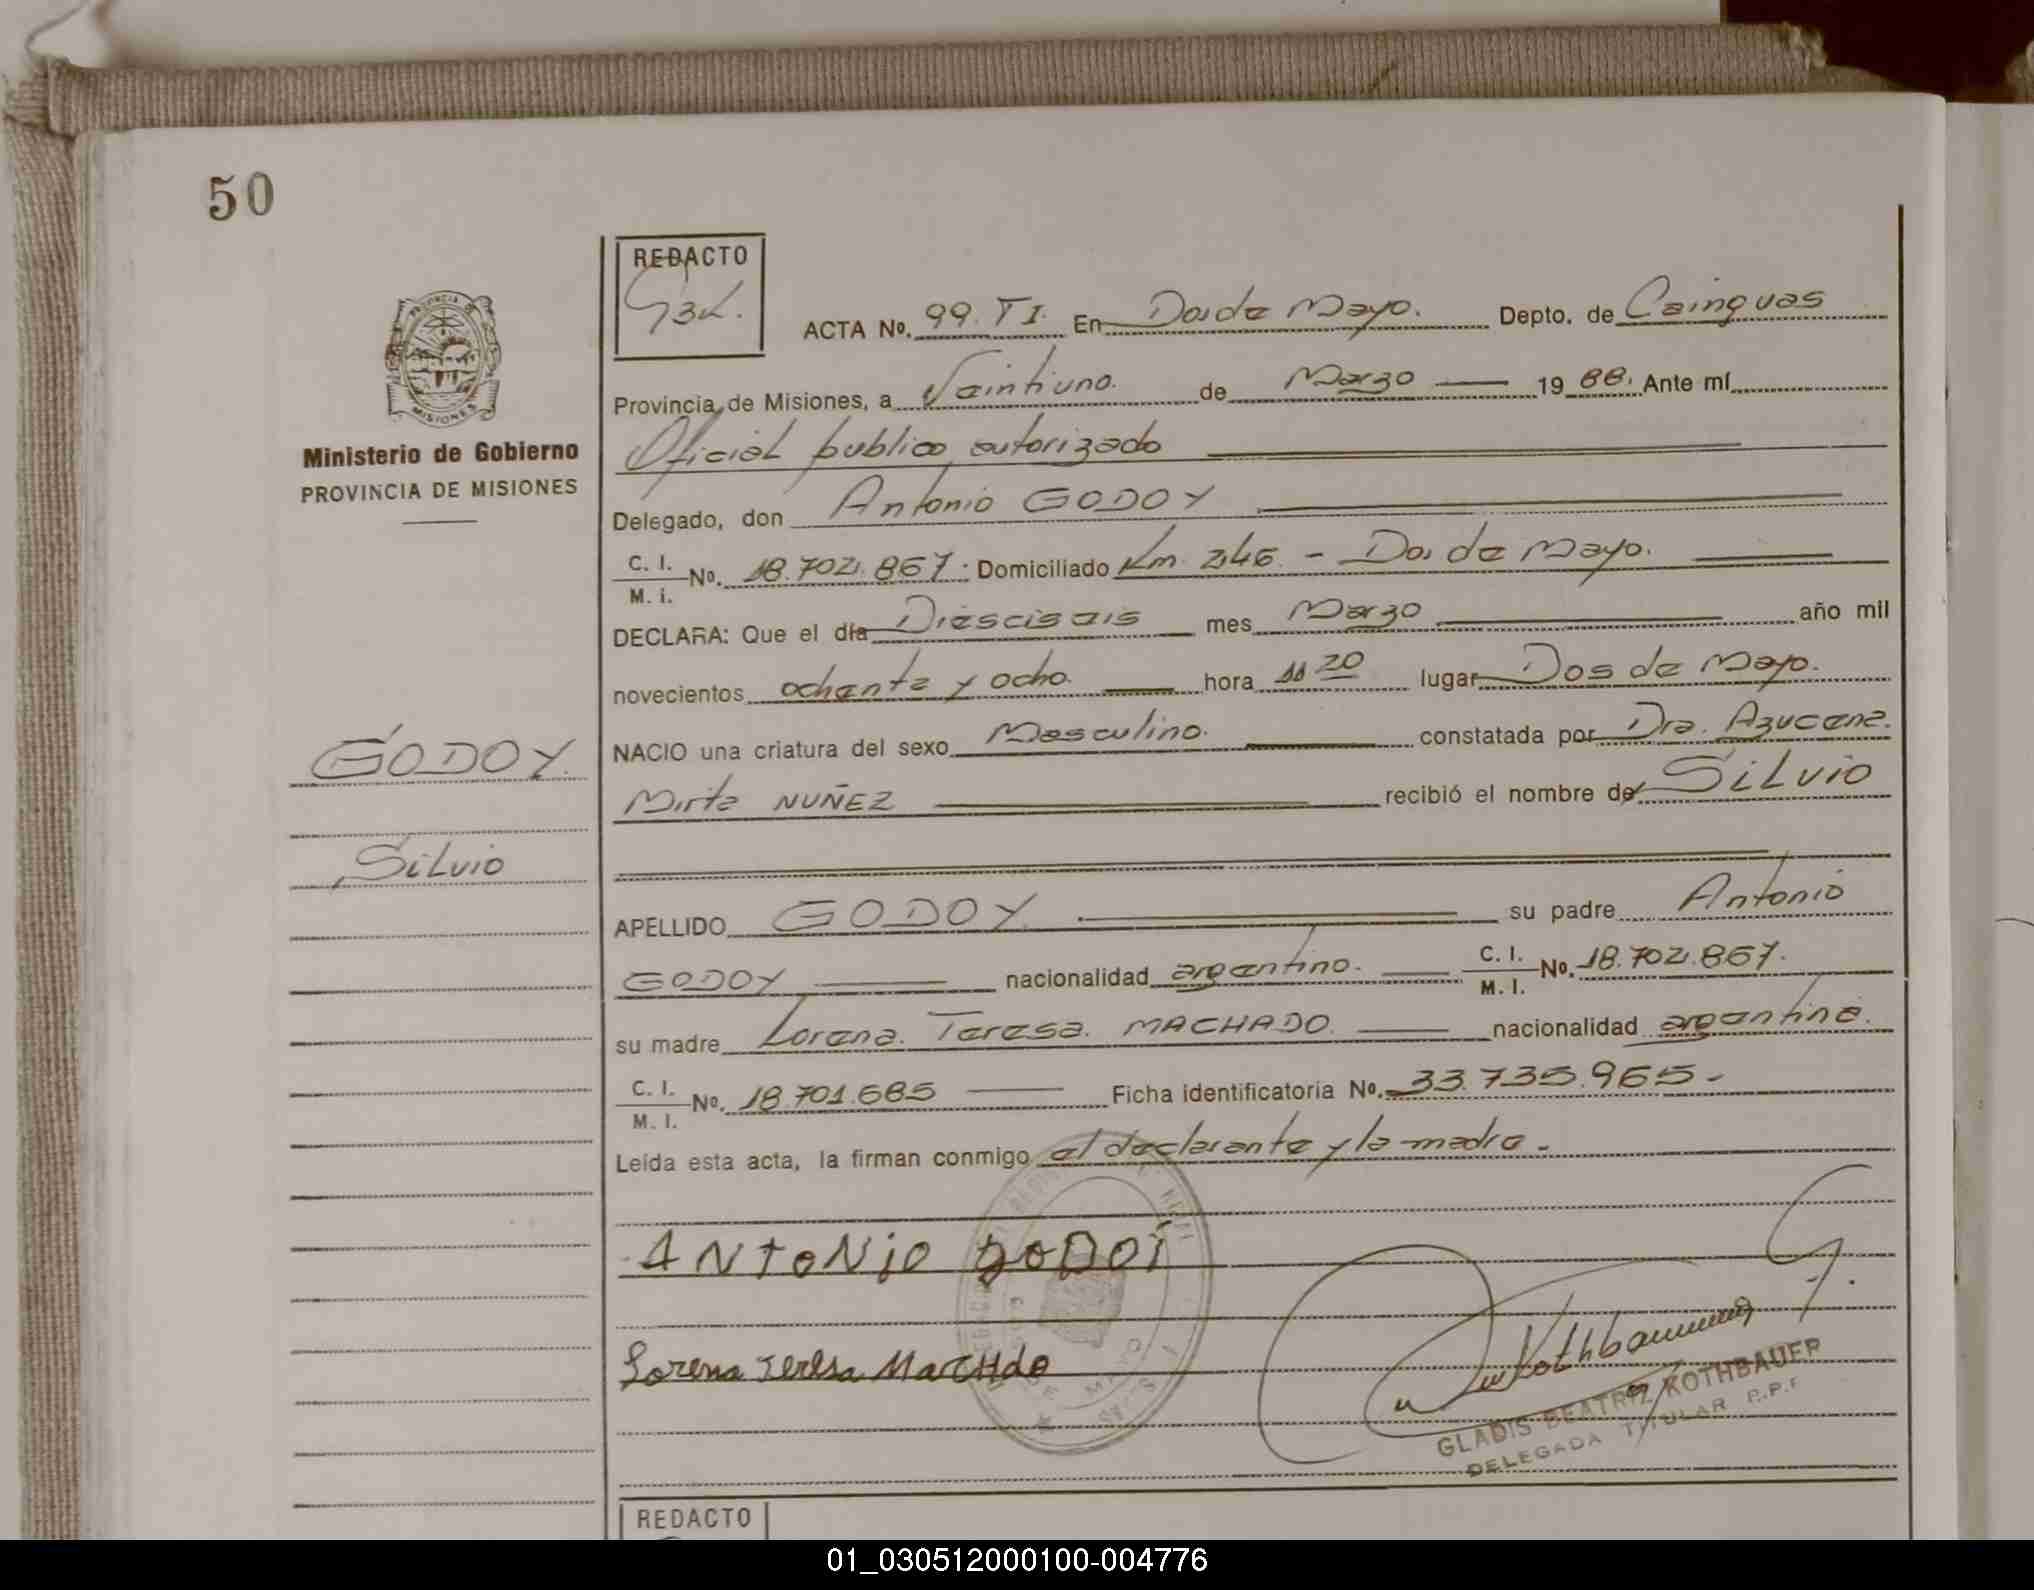 50
REDACTO
ACTA No. 99. TI. En Dos de Mayo. Depto. de Cainguas
Provincia de Misiones, a Veintiuno. de Marzo 19 88. Ante mí
Oficial publico autorizado
Delegado, don Antonio GODOY
C. I.
M. i.
No. 18.702.867. Domiciliado Km. 246 - Dos de Mayo.
DECLARA: Que el día Diesciseis mes Marzo año mil
novecientos ochenta y ocho. hora 11 20 lugar Dos de Mayo.
NACIO una criatura del sexo Masculino. constatada por Dra. Azucena.
Mirta NUÑEZ recibió el nombre de SiLvio
APELLIDO GODOY su padre Antonio
GODOY nacionalidad argentino. C. I. M. I. No. 18.702.867.
su madre Lorena. Teresa. MACHADO. nacionalidad argentina.
C. I.
M. I.
No. 18.701.685 Ficha identificatoria No. 33.735.965-
Leída esta acta, la firman conmigo el declarante y la madre.-
ANToNio GoDOi
Lorena Teresa MacHdo
GLADIS BEATRIZ KOTHBAUER
DELEGADA TITULAR P.P.F
REDACTO
PROVINCIA DE
MISIONES
Ministerio de Gobierno
PROVINCIA DE MISIONES
GODOY.
SiLvio
01_030512000100-004776